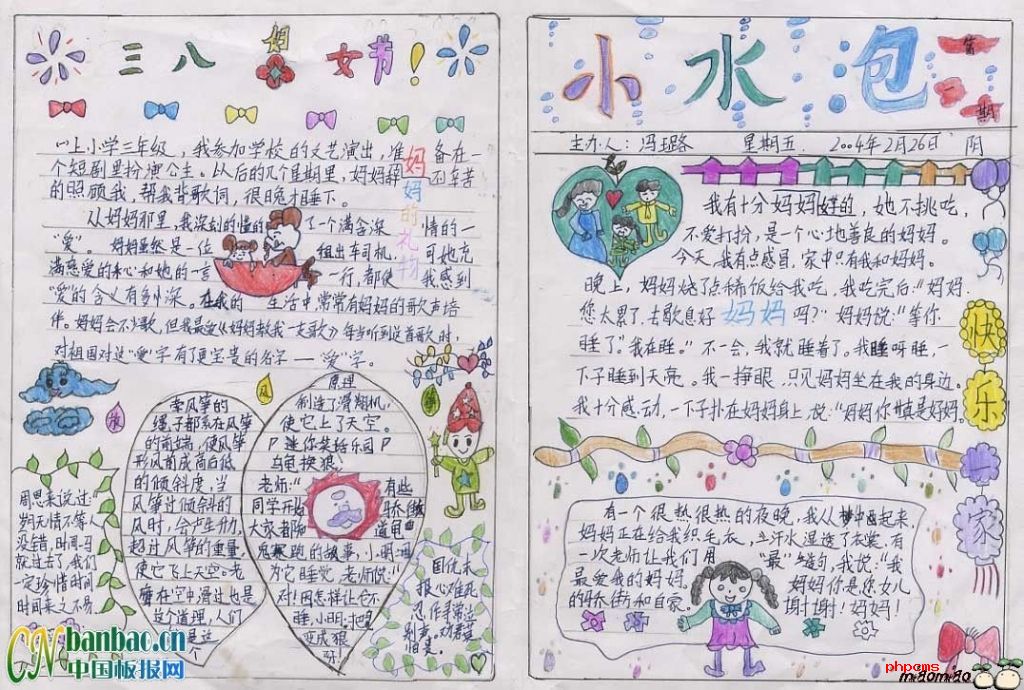 三八妇女节!
小水泡
第一期
主办人:冯珏路 星期五 2004年2月26日 阴
妈妈的礼物
"上小学三年级",我参加学校的文艺演出,准备在一
个短剧里扮演公主。以后的几个星期里,妈妈辞不辛苦
的照顾我,帮我背歌词,很晚才睡下。
从妈妈那里,我深刻的懂的了一个满含深情的
"爱"。妈妈虽然是一位出租车司机,可她充
满慈爱的心和她的一言一行,都使我感到
"爱"的含义有多深。在我的生活中常常有妈妈的歌声培
伴。妈妈会不少歌,但我最爱《妈妈教我一支歌》每当听到这首歌时,
对祖国对这"爱"字有了更宝贵的名字—"爱"字。
放
风
筝
原理
牵风筝的
绳子都系在风筝
的前端,使风筝
形成前高后低
的倾斜度,当
风筝过倾斜的
风时,会产生升力,
超过风筝的重量,
使它飞上天空。老
鹰在空中滑过也是
这个道理,人们
是这
制造了滑翔机,
使它上了天空。
迷你笑话乐园
乌龟换狼
老师:"有些
同学开始骄傲
大家都知道龟
兔赛跑的故事,小明
为它睡觉,老师说:"
对!因怎样让它不
睡,小明:把龟
变成狼
呀!
周恩来说过:"
期无情不等人
没错,时间一马
就过去了,我们
一定珍惜时间
时间来之不易
我有十分妈妈好的,她不挑吃,
不爱打扮,是一个心地善良的妈妈。
今天,我有点感冒,家中只有我和妈妈。
晚上,妈妈烧了点稀饭给我吃,我吃完后:"妈妈
您太累了,去歇息好吗?"妈妈说:"等你
妈妈
睡了"我在睡。"不一会,我就睡着了。我睡呀睡,一
下子睡到天亮。我一挣眼,只见妈妈坐在我的身边。
我十分感动,一下子扑在妈妈身上,说:"妈妈你真是好妈。
快乐一家
有一个很热很热的夜晚,我从梦中起来,
妈妈正在给我织毛衣,汗水湿透了衣裳。有
一次老师让我们用"最"造句,我说:"我
最爱我的妈妈,妈妈你是您女儿
的骄傲和自家。
妈妈!
CN banbao.cn
中国板报网
phpcms
miaomiao